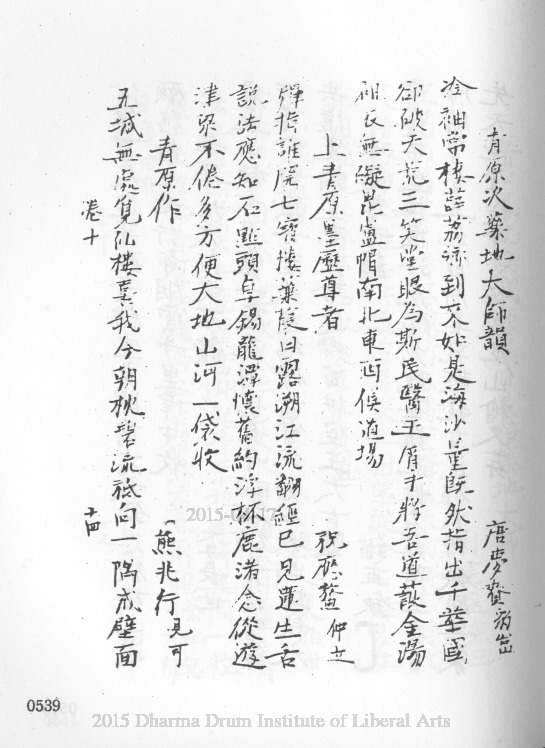 青原次藥地大師韻 唐夢賚嵒
冷袖常棲薜荔凉到來如是海沙量既然指出千華國
卻破天荒三笑堂眼為斯民醫王屑手將吾道蓺金湯
祖衣無礙毘盧帽南北東西俟道場
上青原墨歷尊者 祝應鰲仲立
彈指誰開七寶樓藥陵白露溯江流翻經已見蓮生舌
說法應知石點頭卓錫龍潭懷舊約浮杯鹿渚念從遊
津梁不倦多方便大地山河一袋收
青原作 熊兆行見可
五城無處覓仙樓喜我今朝枕碧流祗向一隅成壁面
卷十 十四
2015-03-17
0539
2015 Dharma Drum Institute of Liberal Arts